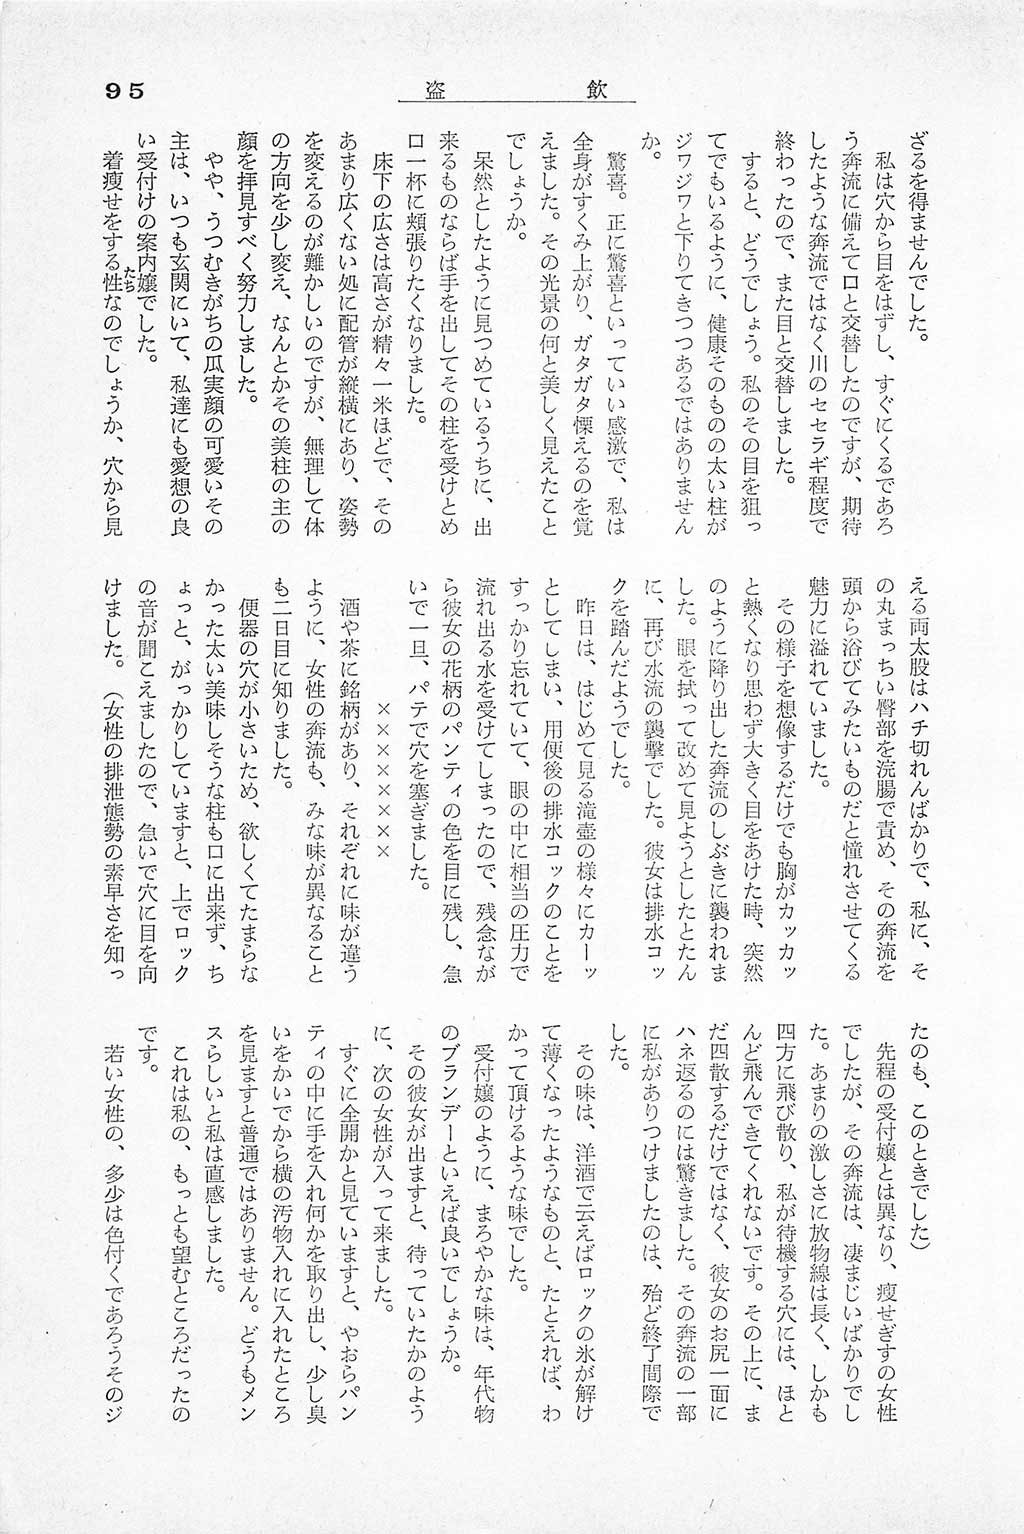 95
盗飲
ざるを得ませんでした。
私は穴から目をはずし、すぐにくるであろ
う奔流に備えて口と交替したのですが、期待
したような奔流ではなく川のセセラギ程度で
終わったので、また目と交替しました。
すると、どうでしょう。私のその目を狙っ
てでもいるように、健康そのものの太い柱が
ジワジワと下りてきつつあるではありません
か。
驚喜。正に驚喜といっていい感激で、私は
全身がすくみ上がり、ガタガタ慄えるのを覚
えました。その光景の何と美しく見えたこと
でしょうか。
呆然としたように見つめているうちに、出
来るものならば手を出してその柱を受けとめ
口一杯に頬張りたくなりました。
床下の広さは高さが精々一米ほどで、その
あまり広くない処に配管が縦横にあり、姿勢
を変えるのが難かしいのですが、無理して体
の方向を少し変え、なんとかその美柱の主の
顔を拝見すべく努力しました。
やや、うつむきがちの瓜実顔の可愛いその
主は、いつも玄関にいて、私達にも愛想の良
い受付けの案内嬢でした。
着痩せをする性なのでしょうか、穴から見
たち
える両太股はハチ切れんばかりで、私に、そ
の丸まっちい臀部を浣腸で責め、その奔流を
頭から浴びてみたいものだと憧れさせてくる
魅力に溢れていました。
その様子を想像するだけでも胸がカッカッ
と熱くなり思わず大きく目をあけた時、突然
のように降り出した奔流のしぶきに襲われま
した。眼を拭って改めて見ようとしたとたん
に、再び水流の襲撃でした。彼女は排水コッ
クを踏んだようでした。
昨日は、はじめて見る滝壺の様々にカーッ
としてしまい、用便後の排水コックのことを
すっかり忘れていて、眼の中に相当の圧力で
流れ出る水を受けてしまったので、残念なが
ら彼女の花柄のパンティの色を目に残し、急
いで一旦、パテで穴を塞ぎました。
×××××××
酒や茶に銘柄があり、それぞれに味が違う
ように、女性の奔流も、みな味が異なること
も二日目に知りました。
便器の穴が小さいため、欲しくてたまらな
かった太い美味しそうな柱も口に出来ず、ち
ょっと、がっかりしていますと、上でロック
の音が聞こえましたので、急いで穴に目を向
けました。（女性の排泄態勢の素早さを知っ
たのも、このときでした）
先程の受付嬢とは異なり、痩せぎすの女性
でしたが、その奔流は、凄まじいばかりでし
た。あまりの激しさに放物線は長く、しかも
四方に飛び散り、私が待機する穴には、ほと
んど飛んできてくれないです。その上に、ま
だ四散するだけではなく、彼女のお尻一面に
ハネ返るのには驚きました。その奔流の一部
に私がありつけましたのは、殆ど終了間際で
した。
その味は、洋酒で云えばロックの氷が解け
て薄くなったようなものと、たとえれば、わ
かって頂けるような味でした。
受付嬢のように、まろやかな味は、年代物
のブランデーといえば良いでしょうか。
その彼女が出ますと、待っていたかのよう
に、次の女性が入って来ました。
すぐに全開かと見ていますと、やおらパン
ティの中に手を入れ何かを取り出し、少し臭
いをかいでから横の汚物入れに入れたところ
を見ますと普通ではありません。どうもメン
スらしいと私は直感しました。
これは私の、もっとも望むところだったの
です。
若い女性の、多少は色付くであろうそのジ